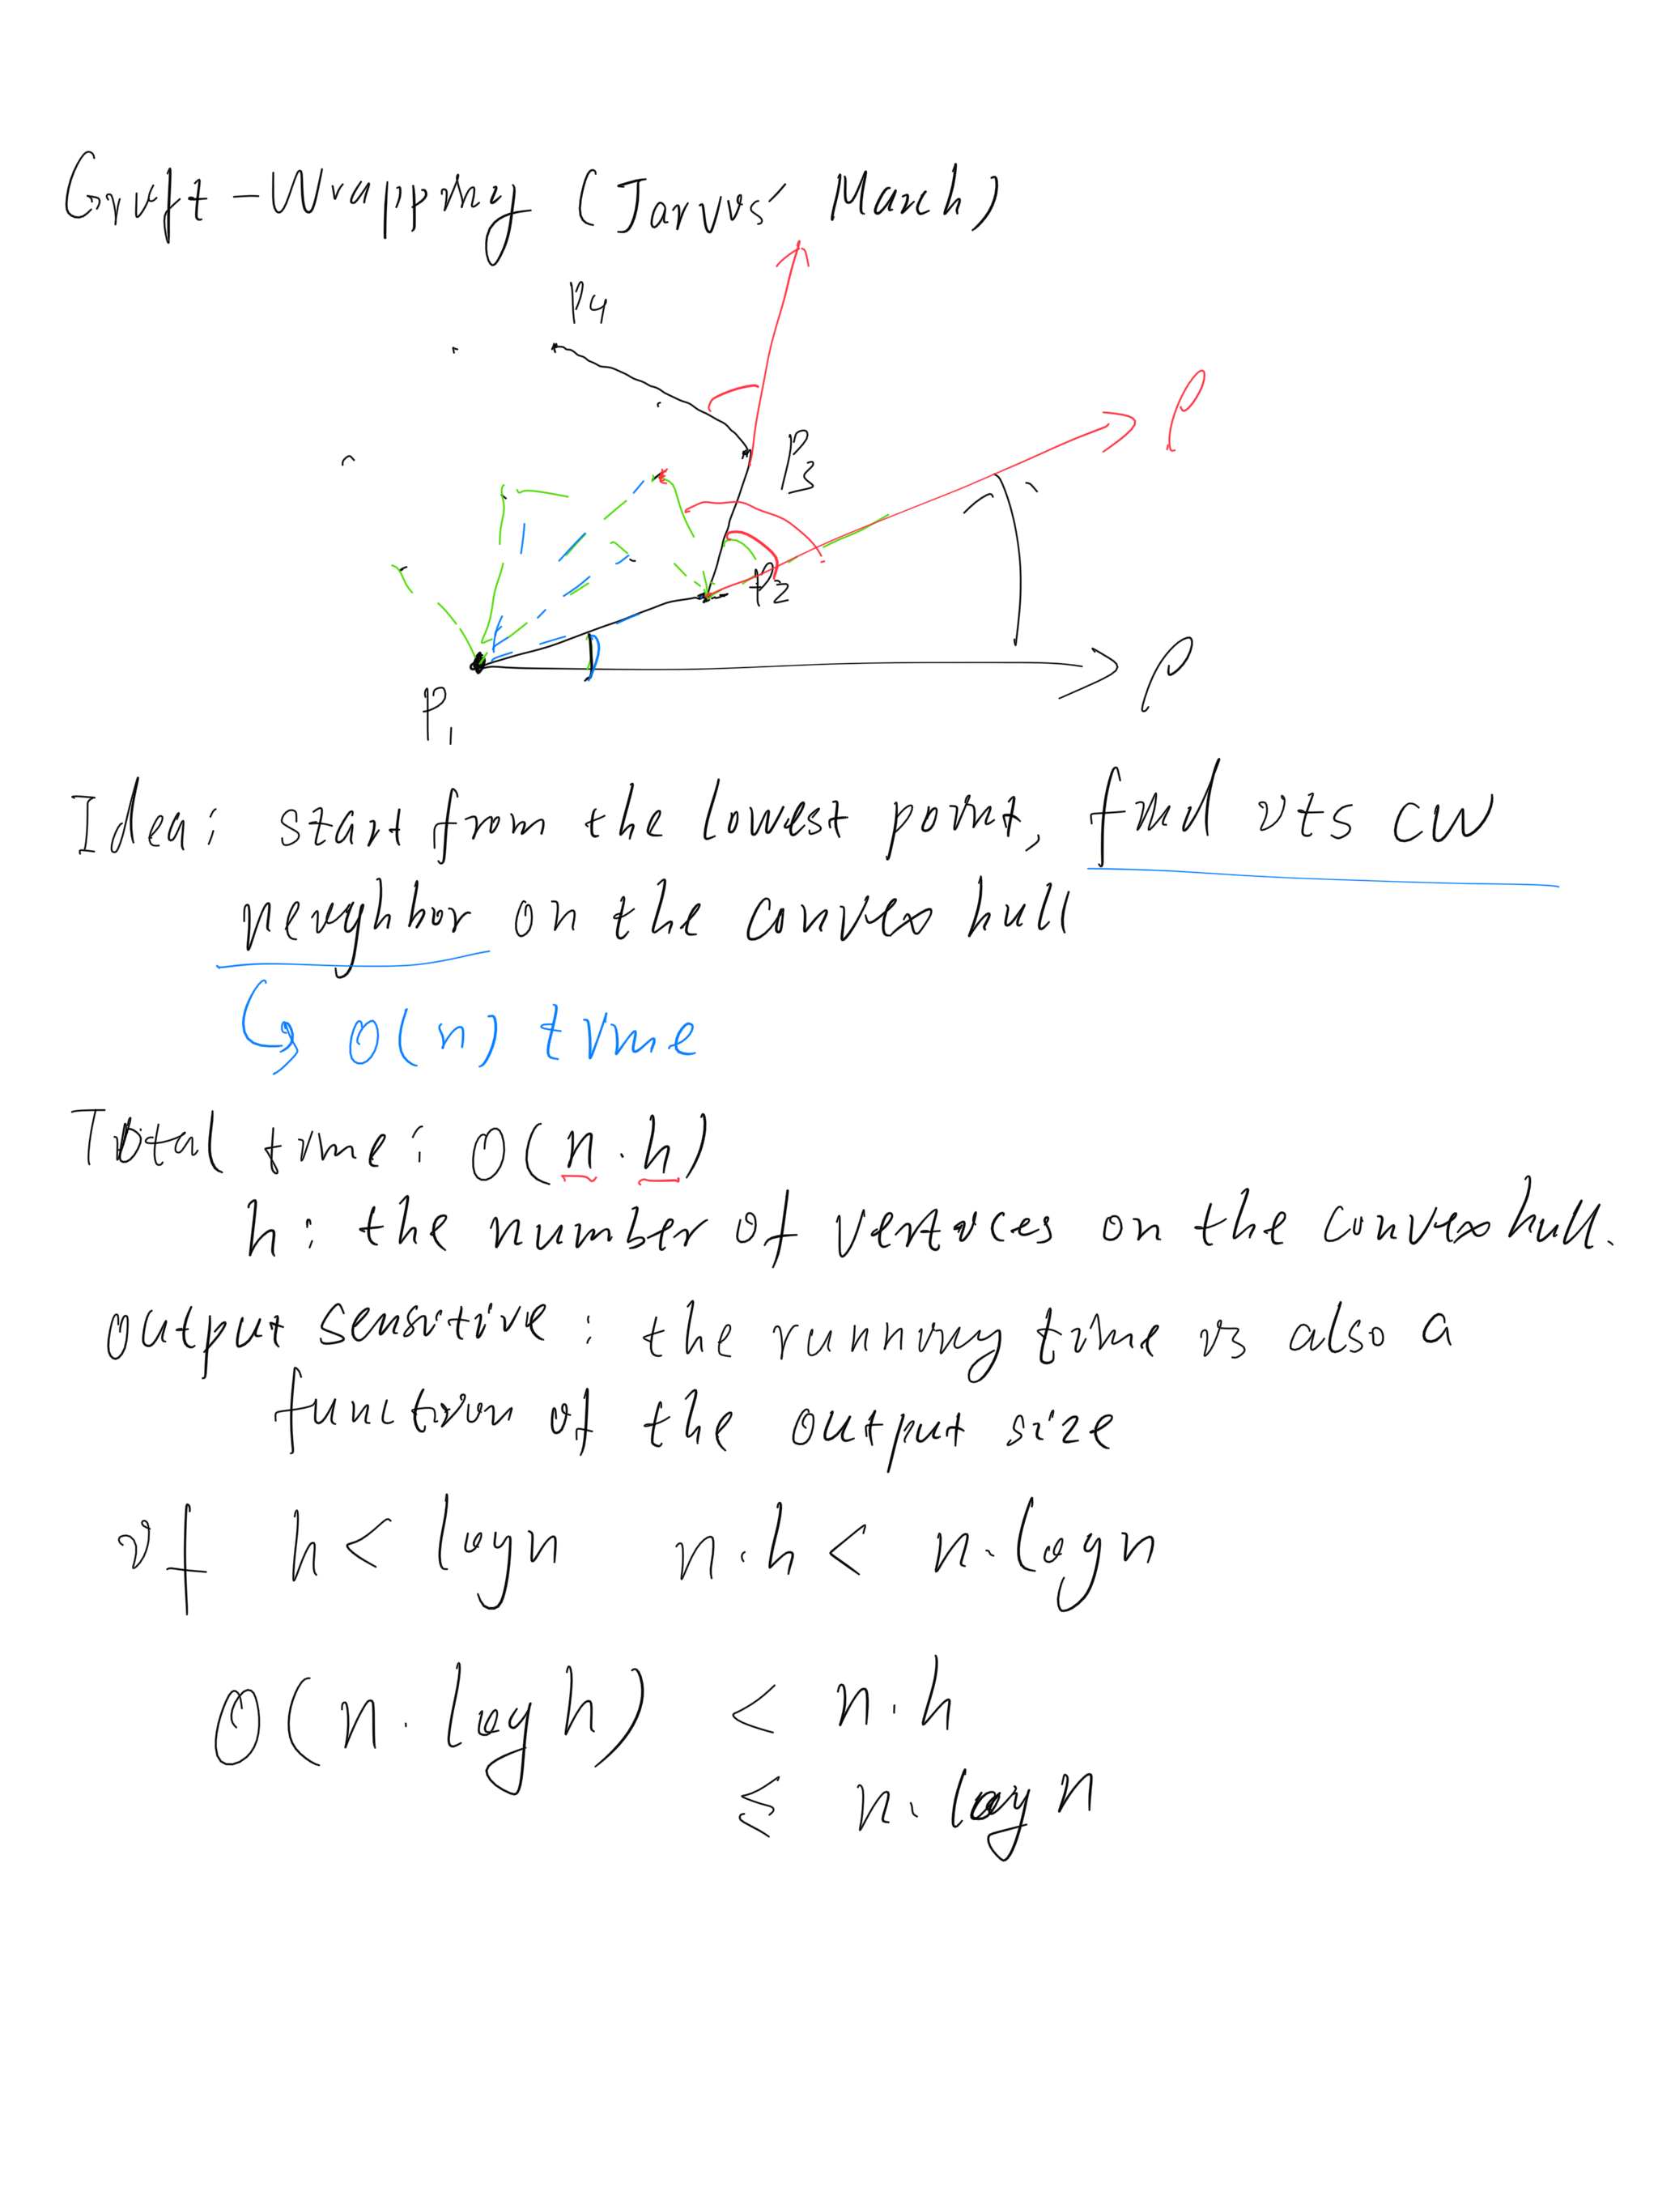 Gift-Wrapping (Jarvis' March)
P4
ρ
P3
P2
ρ
P1
Idea: start from the lowest point, find its cw
neighbor on the convex hull
↳ O(n) time
Total time: O(n·h)
h: the number of vertices on the convex hull.
output sensitive: the running time is also a
function of the output size
if h < logn n·h < n·logn
O(n·logh) < n·h
≤ n·logn